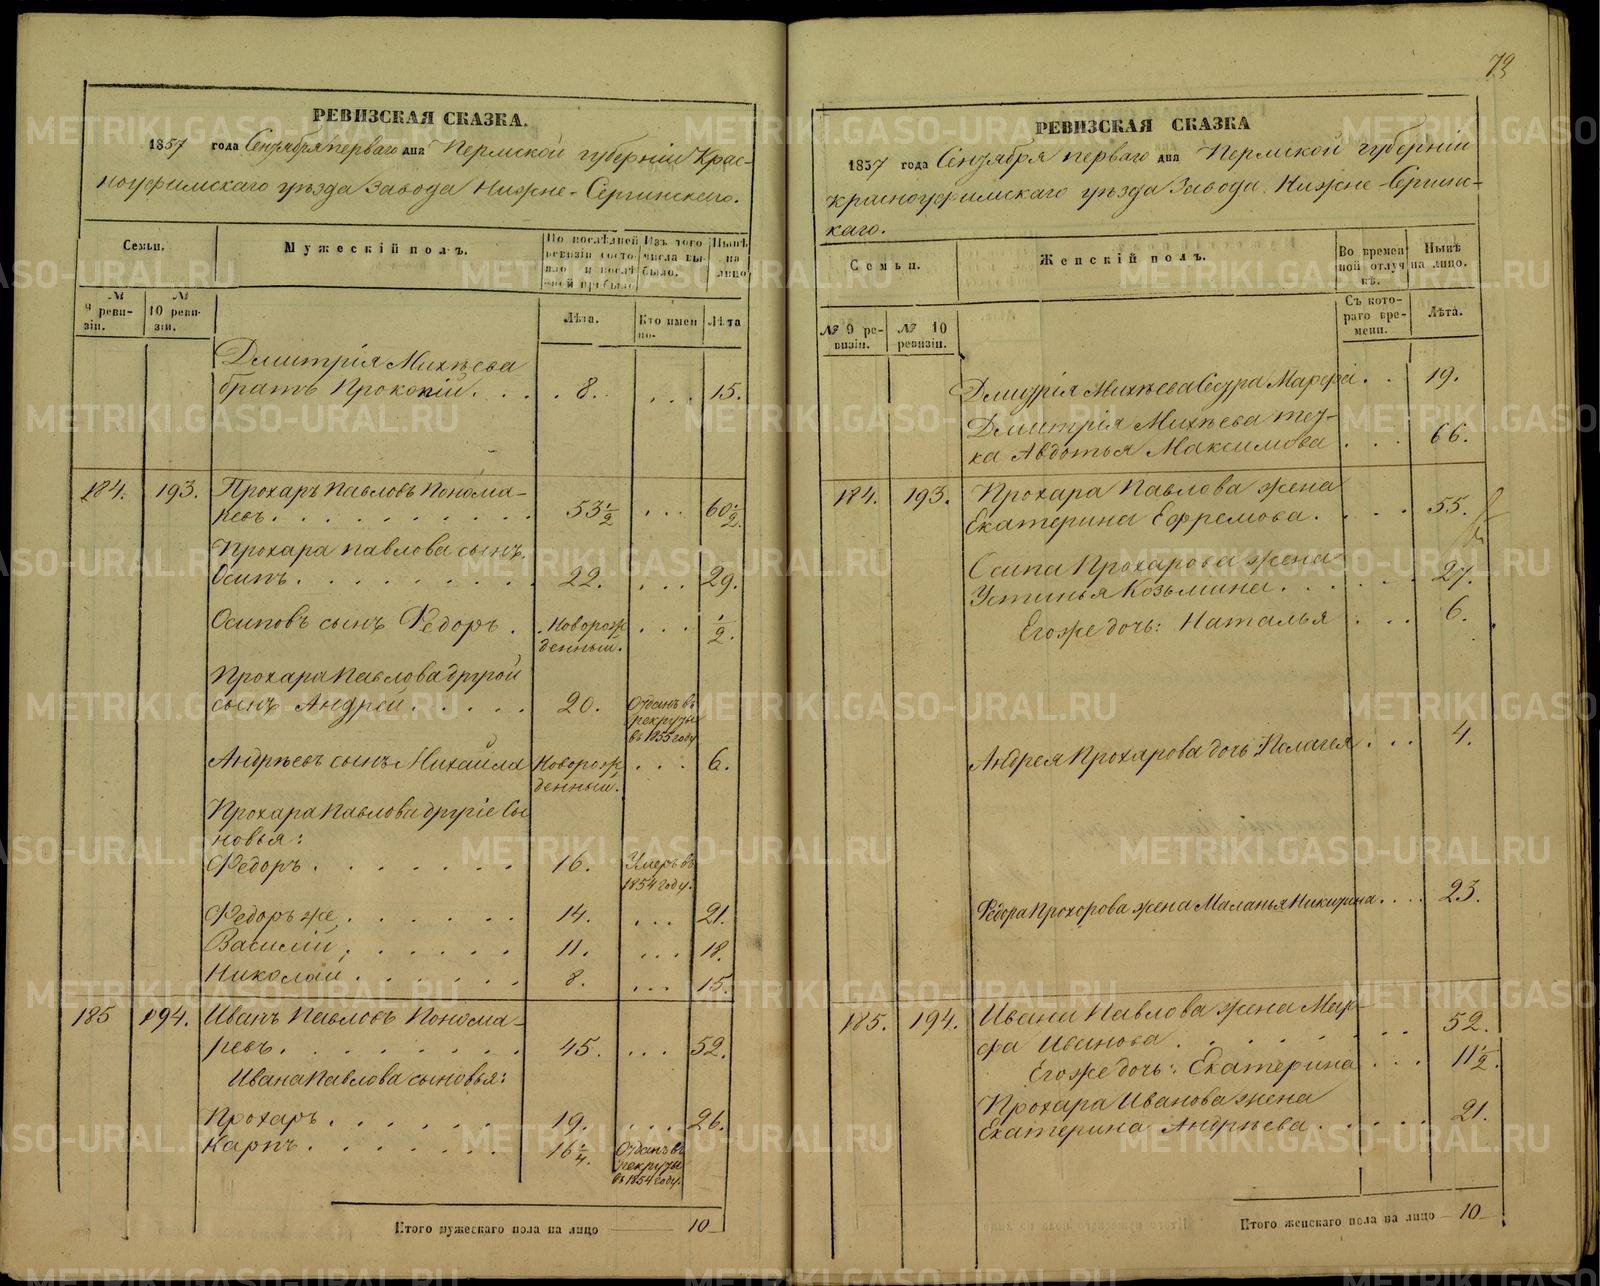 РЕВИЗСКАЯ СКАЗКА.
1857 года Сентября перваго дня Пермской губерніи Крас-
ноуфимскаго уѣзда Завода Нижне-Сергинскаго.
Семьи.
Мужескій полъ.
По послѣдней ревизіи состояло и послѣ оной прибыло
Изъ того числа выбыло.
Нынѣ на лицо
№ 9 ревизіи.
№ 10 ревизіи.
Лѣта.
Кто именно.
Лѣта
Дмитрія Михѣева
братъ Прокопій. . . . 8. . . . 15.
184. 193. Прохаръ Павловъ Понома-
ревъ. . . . . . . . . . 53 1/2 . . . 60 1/2.
Прохара Павлова сынъ
Осипъ. . . . . . . . . 22. . . . 29.
Осиповъ сынъ Ѳедоръ. Новорож- . . . 1/2.
денный.
Прохара Павлова другой
сынъ Андрей. . . . . 20. Отданъ въ
рекруты
въ 1855 году
Андрѣевъ сынъ Михаила Новорож- . . . 6.
денный.
Прохара Павлова другіе сы-
новья:
Ѳедоръ. . . . . . . 16. Умеръ въ
1854 году.
Ѳедоръ же. . . . . . 14. . . . 21.
Василій. . . . . . . 11. . . . 18.
Николай. . . . . . . 8. . . . 15.
185 194. Иванъ Павловъ Понома-
ревъ. . . . . . . . . 45. . . . 52.
Ивана Павлова сыновья:
Прохаръ. . . . . . 19. . . . 26.
Карпъ. . . . . . . 16 1/4. Отданъ въ
рекруты
въ 1854 году.
Итого мужескаго пола на лицо 10
73
РЕВИЗСКАЯ СКАЗКА
1857 года Сентября перваго дня Пермской губерніи
Красноуфимскаго уѣзда Завода Нижне-Сергинс-
каго.
Семьи.
Женскій полъ.
Во временной отлучкѣ.
Нынѣ на лицо.
№ 9 ревизіи.
№ 10 ревизіи.
Съ котораго времени.
Лѣта.
Дмитрія Михѣева Сестра Марфа. . 19.
Дмитрія Михѣева тет-
ка Авдотья Максимова . . . 66.
184. 193. Прохара Павлова жена
Екатерина Ефремова. . . . 55.
Осипа Прохарова жена
Устинья Козьмина. . . . . 27.
Егоже дочь: Наталья . . . 6.
Андрея Прохарова дочь Полагея . . . 4.
Ѳедора Прохорова жена Маланья Никитина. . . . 23.
185. 194. Ивана Павлова жена Мар-
фа Иванова. . . . . . . 52.
Егоже дочь: Екатерина . . . 11 1/2.
Прохара Иванова жена
Екатерина Андрѣева. . . . . 21.
Итого женскаго пола на лицо 10
METRIKI.GASO-URAL.RU